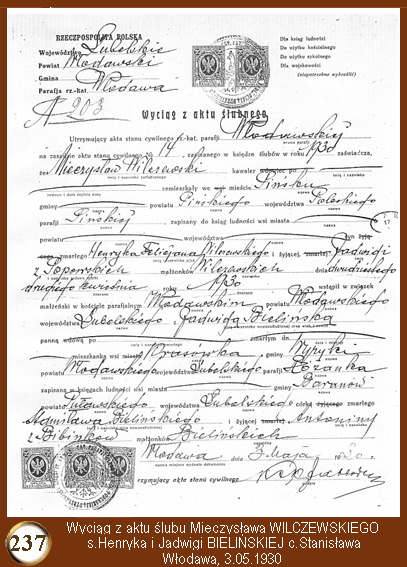 RZECZPOSPOLITA POLSKA
Województwo Lubelskie
Powiat Włodawski
Gmina
Parafja rz.-kat. Włodawa
Dla ksiąg ludności
Do użytku kościelnego
Do użytku szkolnego
Dla wojskowości
(niepotrzebne wykreślić)
№ 203
Wyciąg z aktu ślubnego
Utrzymujący akta stanu cywilnego rz.-kat. parafji Włodawskiej
na zasadzie aktu stanu cywilnego № 14 zapisanego w księdze ślubów w roku 1930 zaświadcza,
że Mieczysław Wilczewski kawaler
zamieszkały we mieście Pińsku
gminy powiatu Pińskiego województwa Poleskiego
parafji Pińskiej zapisany do ksiąg ludności wsi miasta
gminy powiatu województwa syn
zmarłego Henryka Felicjana Wilczewskiego i żyjącej Jadwigi
z Toporskich małżonków Wilczewskich dnia dwudziestego
drugiego kwietnia roku 1930 wstąpił w związek
małżeński w kościele parafjalnym Włodawskim powiatu Włodawskiego
województwa Lubelskiego z Jadwigą Bielińską
panną wdową po zmarłym dn.
mieszkanką wsi miasta gminy Wyryki
powiatu Włodawskiego województwa Lubelskiego parafji
zapisaną w księgach ludności wsi miasta gminy Baranów
powiatu Puławskiego województwa Lubelskiego córką zmarłego
Stanisława Bielińskiego i Antoniny
z małżonków Bielińskich
Włodawa dnia 3 Maja 1930 r.
Utrzymujący akta stanu cywilnego
17
237
Wyciąg z aktu ślubu Mieczysława WILCZEWSKIEGO
s.Henryka i Jadwigi BIELIŃSKIEJ c.Stanisława
Włodawa, 3.05.1930